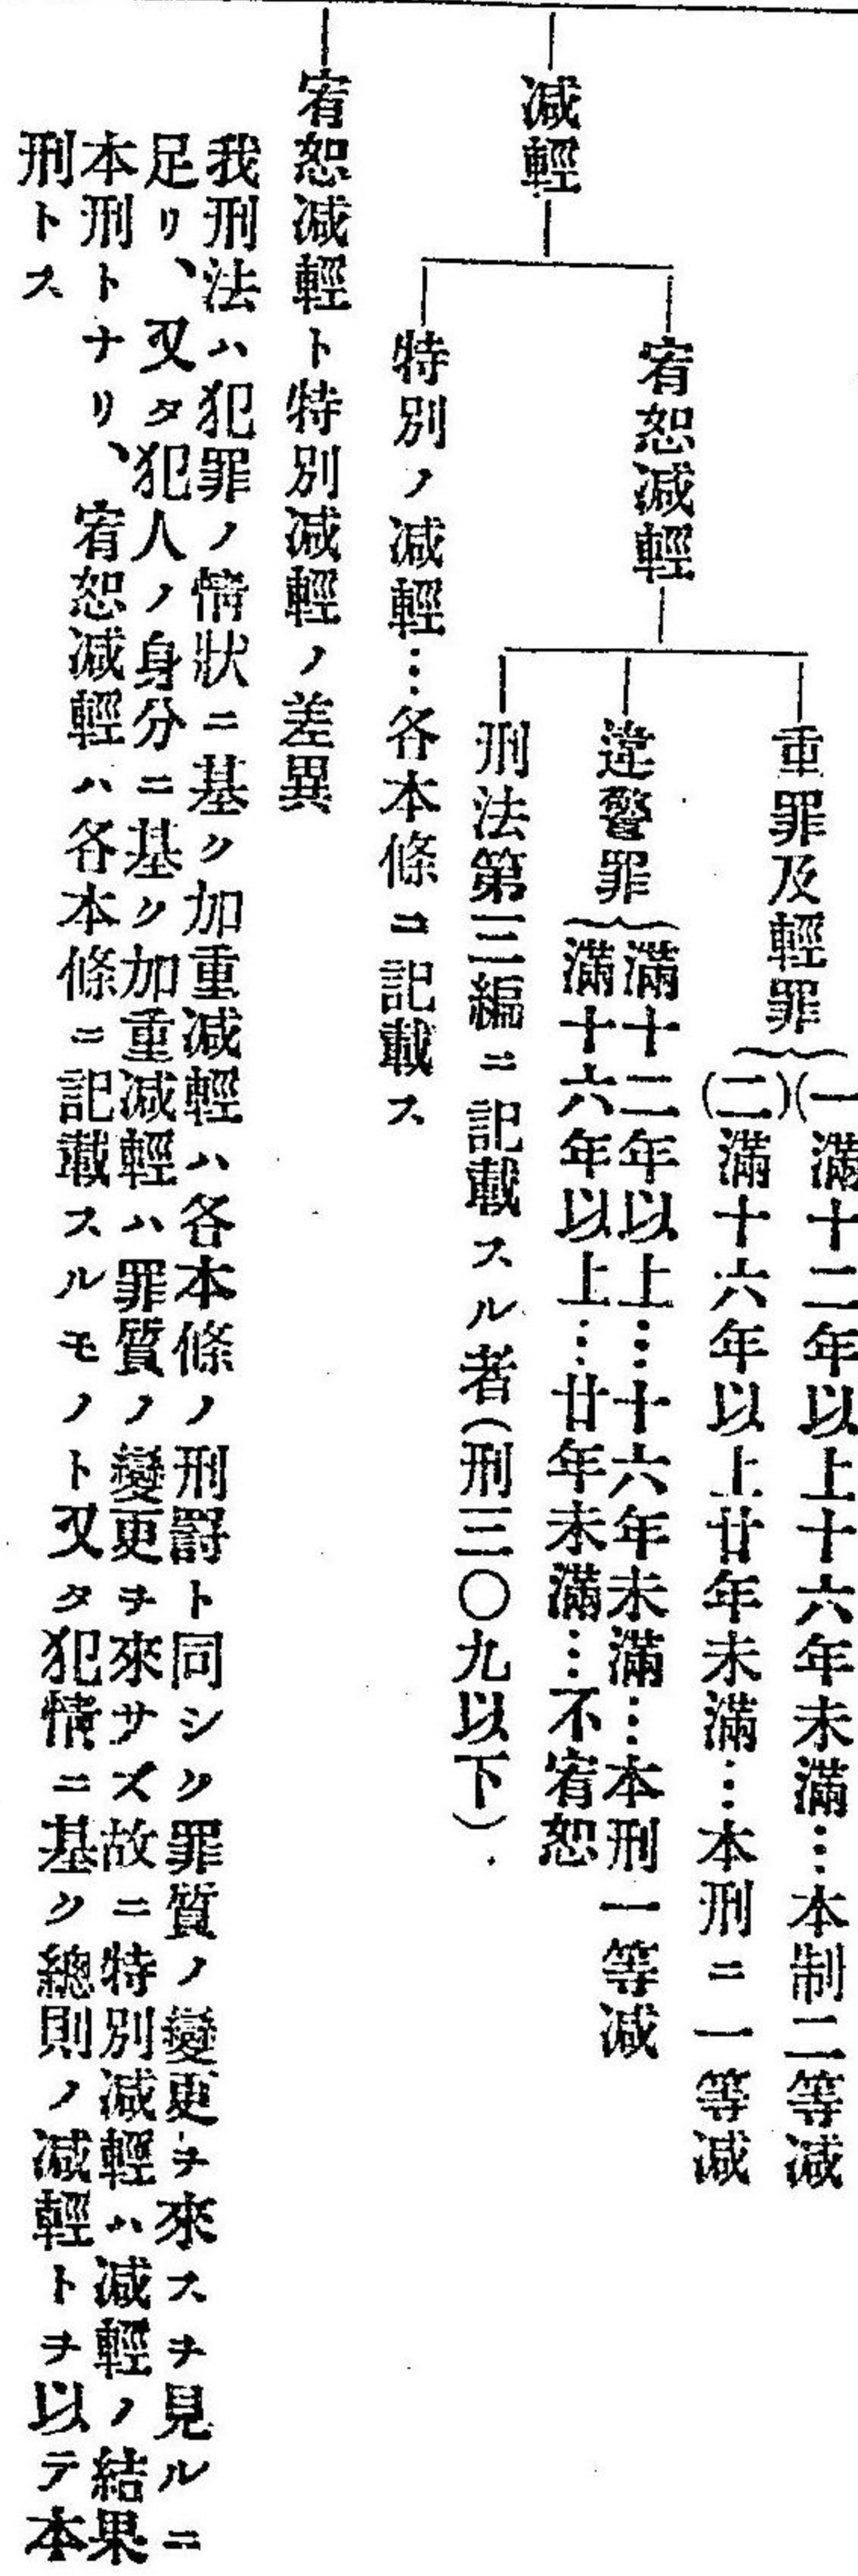 減輕
宥恕減輕
重罪及輕罪
(一滿十二年以上十六年未滿…本制二等減
(二)滿十六年以上廿年未滿…本刑ニ一等減
違警罪
滿十二年以上…十六年未滿…本刑一等減
滿十六年以上…廿年未滿…不宥恕
刑法第三編ニ記載スル者(刑三〇九以下)
特別ノ減輕…各本條ニ記載ス
宥恕減輕ト特別減輕ノ差異
我刑法ハ犯罪ノ情狀ニ基ク加重減輕ハ各本條ノ刑罰ト同シク罪質ノ變更ヲ來スヲ見ルニ
足リ、又タ犯人ノ身分ニ基ク加重減輕ハ罪質ノ變更ヲ來サズ故ニ特別減輕ハ減輕ノ結果
本刑トナリ、宥恕減輕ハ各本條ニ記載スルモノト又タ犯情ニ基ク總則ノ減輕トヲ以テ本
刑トス